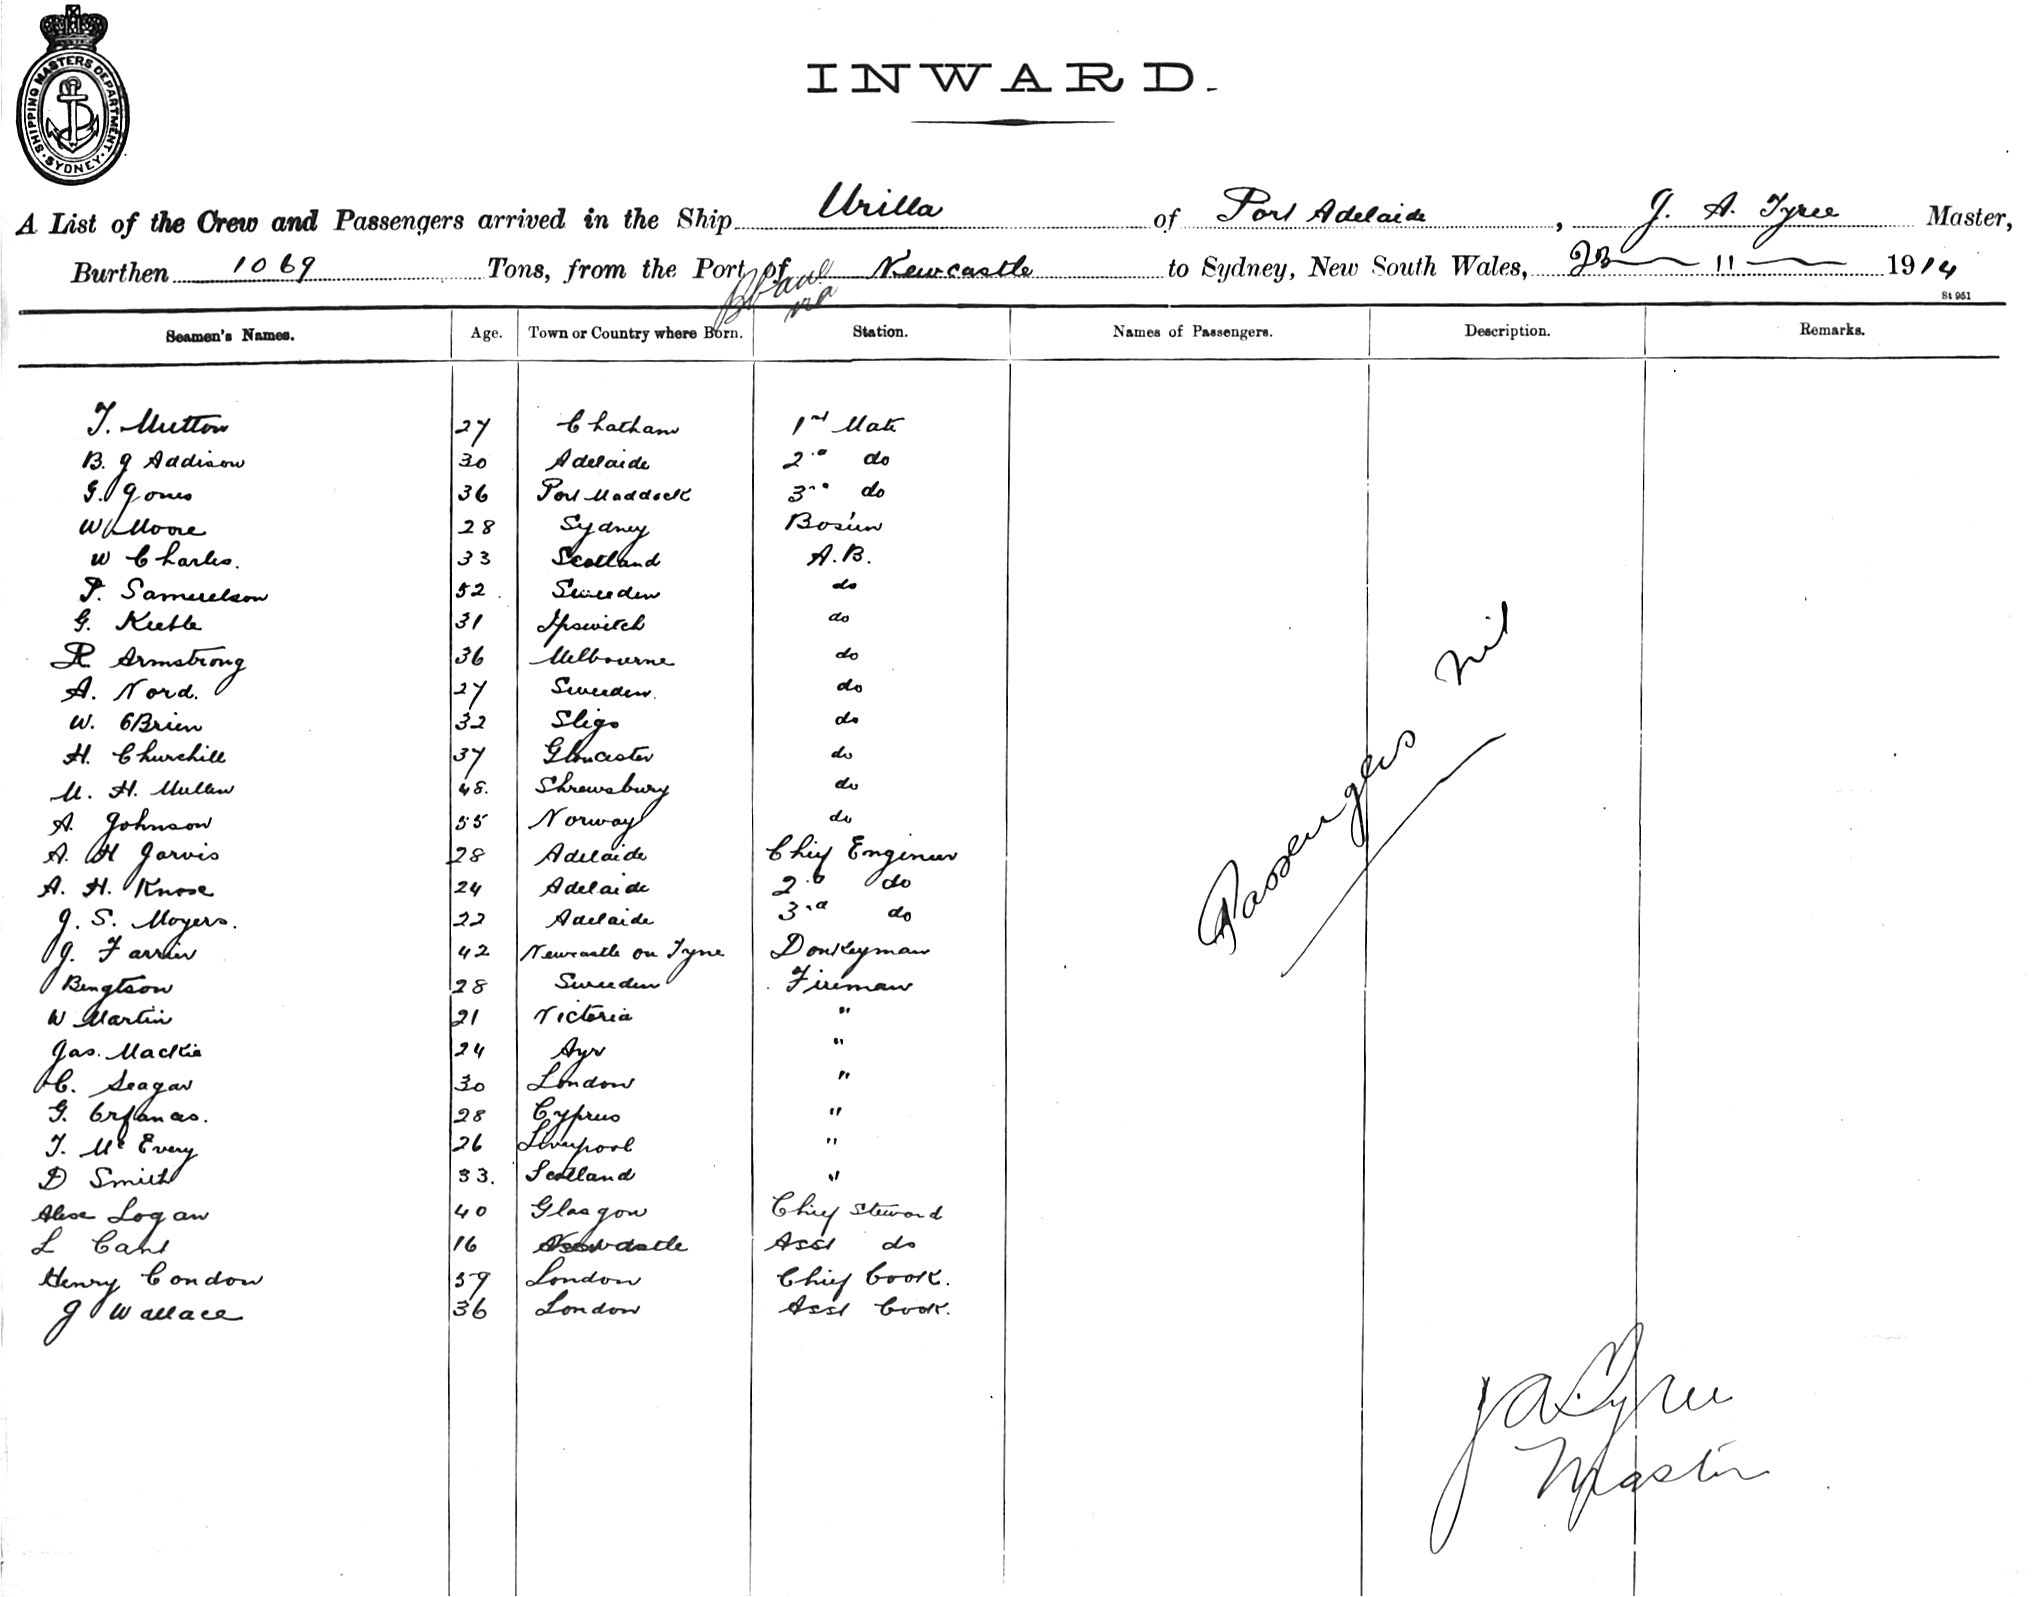 SHIPPING MASTERS DEPARTMENT. SYDNEY.
INWARD.
A List of the Crew and Passengers arrived in the Ship Urilla of Port Adelaide, J. A. Tyree Master,
Burthen 1069 Tons, from the Port of Newcastle to Sydney, New South Wales, 11 1914
St 951
Seamen's Names. Age. Town or Country where Born. Station. Names of Passengers. Description. Remarks.
T. Mutton 27 Chatham 1st Mate
B. J Addison 30 Adelaide 2nd do
G. Jones 36 Port Maddock 3rd do
W Moore 28 Sydney Bos'un
W Charles. 33 Scotland A.B.
P. Samuelson 52 Sweeden do
G. Keeble 31 Ipswitch do
R Armstrong 36 Melbourne do
A. Nord. 27 Sweeden. do
W. OBrien 32 Sligo do
H. Churchill 37 Gloucester do
M. H. Mullen 48. Shrewsbury do
A. Johnson 55 Norway do
A. H Jarvis 28 Adelaide Chief Engineer
A. H. Knose 24 Adelaide 2nd do
J. S. Moyers. 22 Adelaide 3rd do
J. Farrier 42 Newcastle on Tyne Donkeyman
Bengtson 28 Sweeden Fireman
W Martin 21 Victoria "
Jas. Mackie 24 Ayr "
C. Seagar 30 London "
G. Orfanas. 28 Cyprus "
T. Mc Every 26 Liverpool "
D Smith 33. Scotland "
Alex Logan 40 Glasgow Chief Steward
L Cant 16 Newcastle Asst do
Henry Condon 59 London Chief Cook.
J Wallace 36 London Asst Cook.
Passengers nil
J A Tyree
Master